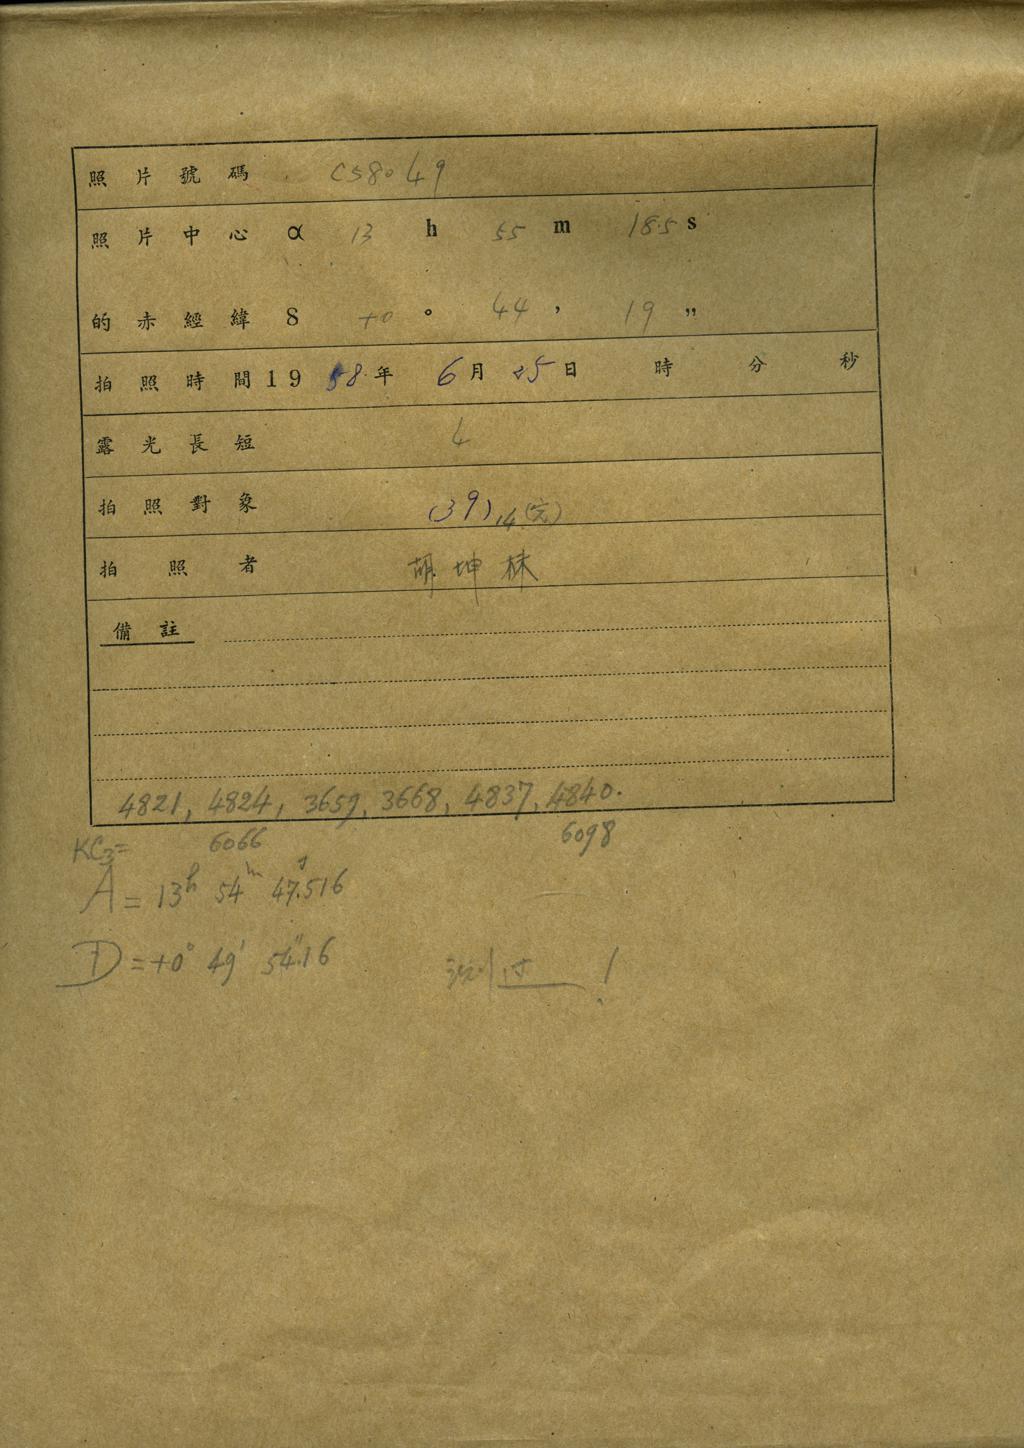 照片號碼 C58049
照片中心 α 13 h 55 m 18.5 s
的赤經緯 δ +0 ° 44 ′ 19 ″
拍照時間 1958年 6月 25日 時 分 秒
露光長短 4
拍照對象 (39)14(完)
拍照者 胡坤林
備註
4821, 4824, 3659, 3668, 4837, 4840.
KC3= 6066 6098
A = 13h 54m 47s.516
D = +0° 49′ 54″.16 測过!